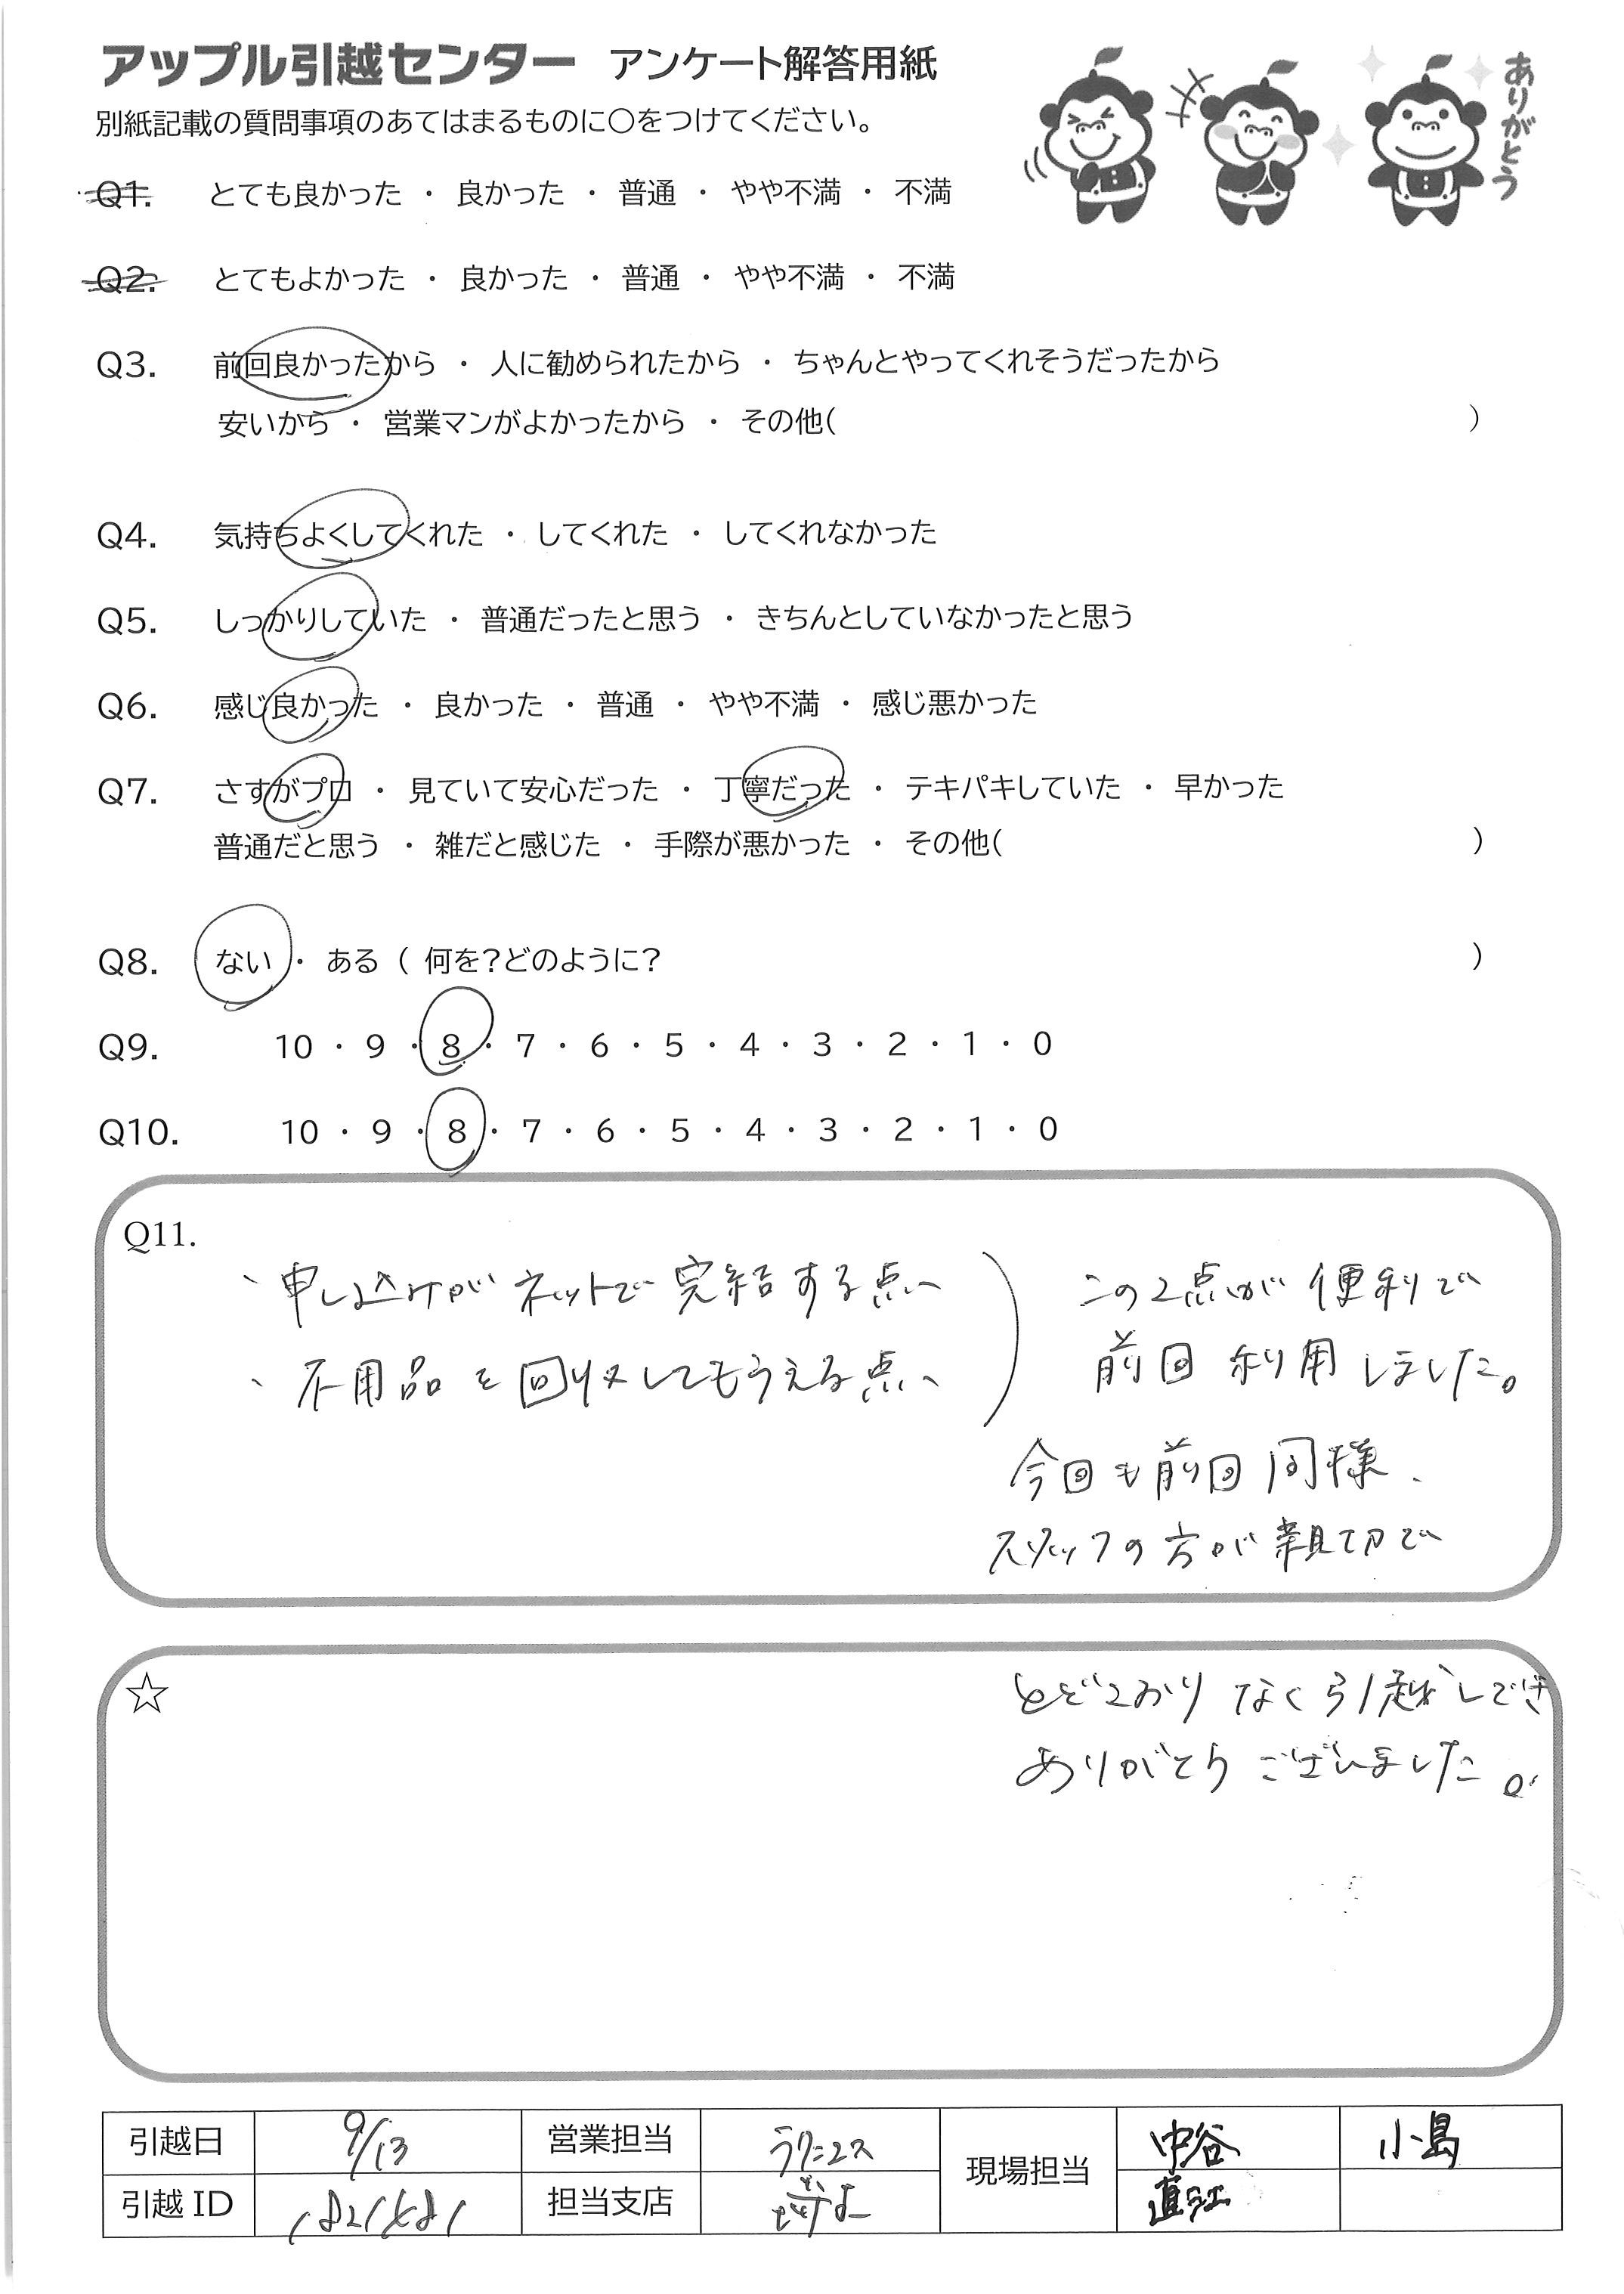 アップル引越センター アンケート解答用紙
ありがとう
別紙記載の質問事項のあてはまるものに○をつけてください。
Q1. とても良かった ・ 良かった ・ 普通 ・ やや不満 ・ 不満
Q2. とてもよかった ・ 良かった ・ 普通 ・ やや不満 ・ 不満
Q3. 前回良かったから ・ 人に勧められたから ・ ちゃんとやってくれそうだったから
安いから ・ 営業マンがよかったから ・ その他( )
Q4. 気持ちよくしてくれた ・ してくれた ・ してくれなかった
Q5. しっかりしていた ・ 普通だったと思う ・ きちんとしていなかったと思う
Q6. 感じ良かった ・ 良かった ・ 普通 ・ やや不満 ・ 感じ悪かった
Q7. さすがプロ ・ 見ていて安心だった ・ 丁寧だった ・ テキパキしていた ・ 早かった
普通だと思う ・ 雑だと感じた ・ 手際が悪かった ・ その他( )
Q8. ない ・ ある ( 何を?どのように? )
Q9. 10 ・ 9 ・ 8 ・ 7 ・ 6 ・ 5 ・ 4 ・ 3 ・ 2 ・ 1 ・ 0
Q10. 10 ・ 9 ・ 8 ・ 7 ・ 6 ・ 5 ・ 4 ・ 3 ・ 2 ・ 1 ・ 0
Q11.
、申し込みがネットで完結する点
、不用品を回収してもらえる点
この2点が便利で
前回利用しました。
今回も前回同様、
スタッフの方が親切で
☆
とどこおりなく引越しでき
ありがとうございました。
引越日 9/13 営業担当 現場担当 中谷 小島
引越ID 担当支店 直江